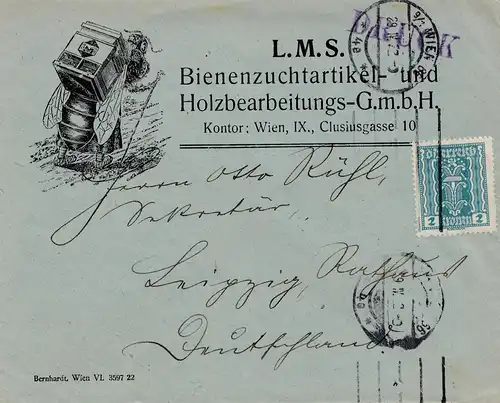 DRUCK
9/1 WIEN
L.M.S.
Bienenzuchtartikel- und
Holzbearbeitungs-G.m.b.H.
Kontor: Wien, IX., Clusiusgasse 10
Herrn Otto Rühl,
Sekretär,
Leipzig, Rathaus
Deutschland.
Österreich
2 Kronen 2
Bernhardt, Wien VI. 3597 22